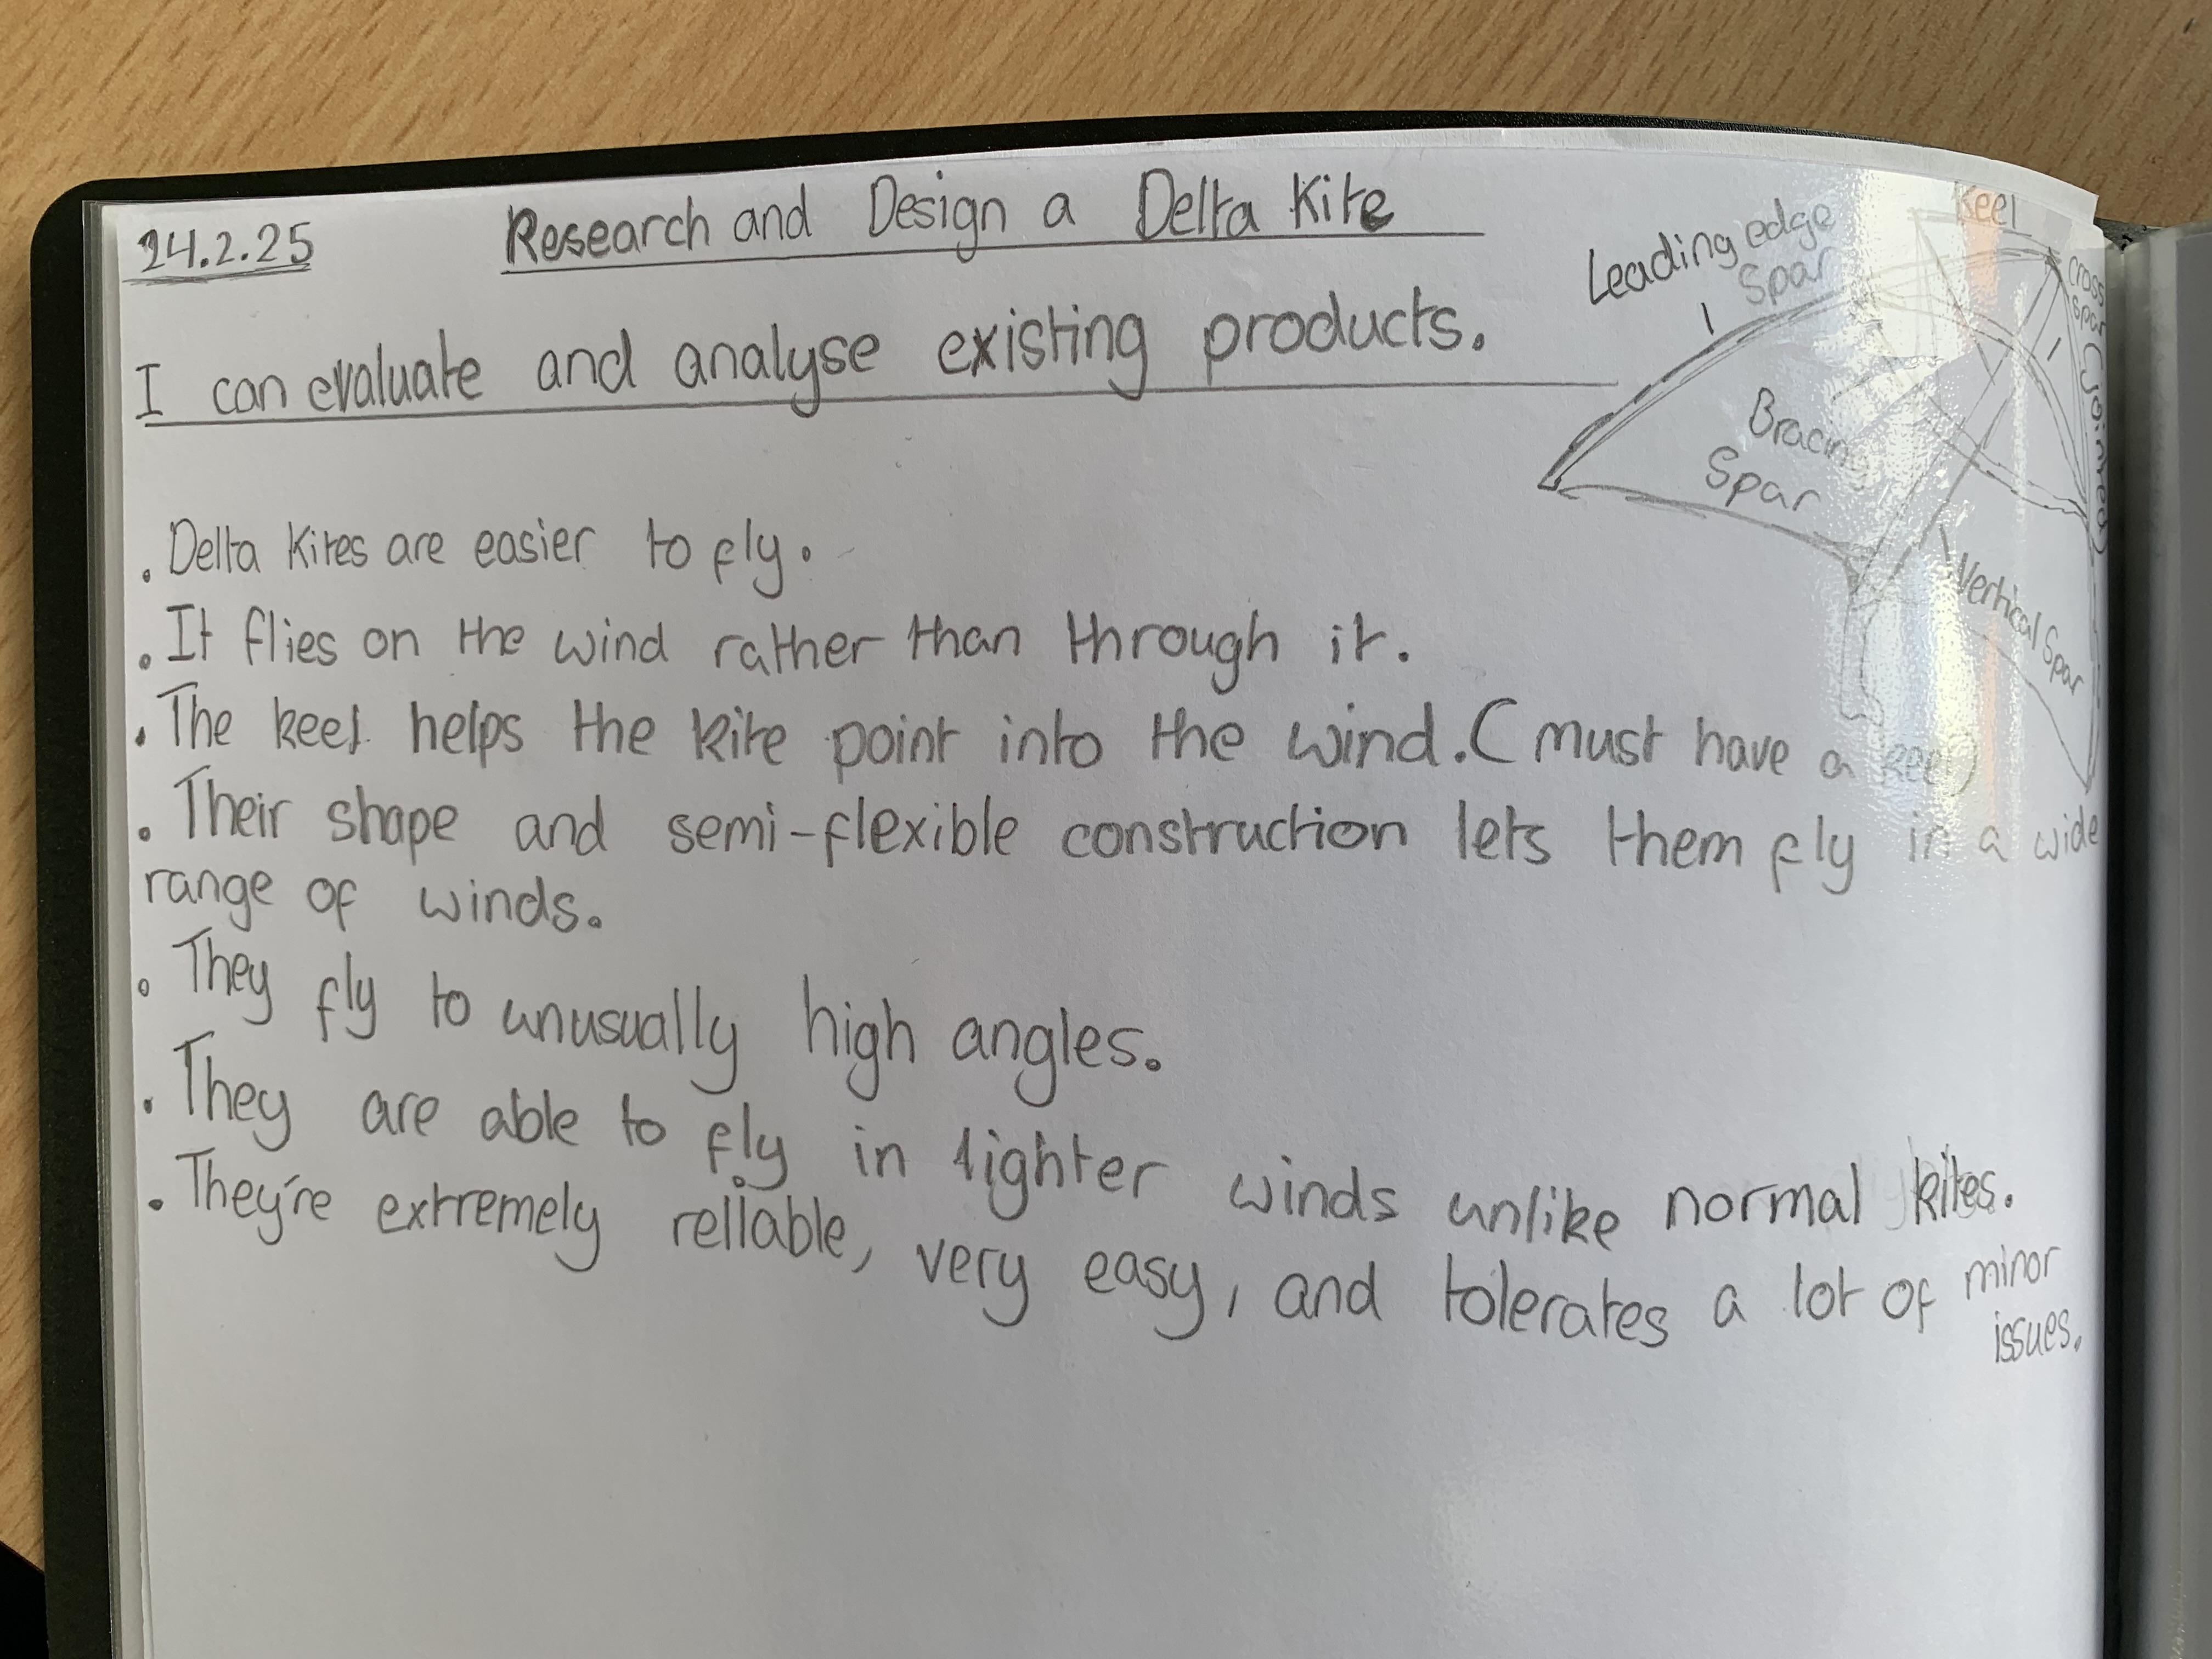 24.2.25 Research and Design a Delta Kite
I can evaluate and analyse existing products.
Leading edge
Spar
Keel
cross
spar (Joined)
Bracing
Spar
Vertical Spar
. Delta Kites are easier to fly.
. It flies on the wind rather than through it.
. The keel helps the kite point into the wind. (must have a keel)
. Their shape and semi-flexible construction lets them fly in a wide
range of winds.
. They fly to unusually high angles.
. They are able to fly in lighter winds unlike normal kites.
. They're extremely reliable, very easy, and tolerates a lot of minor
issues.